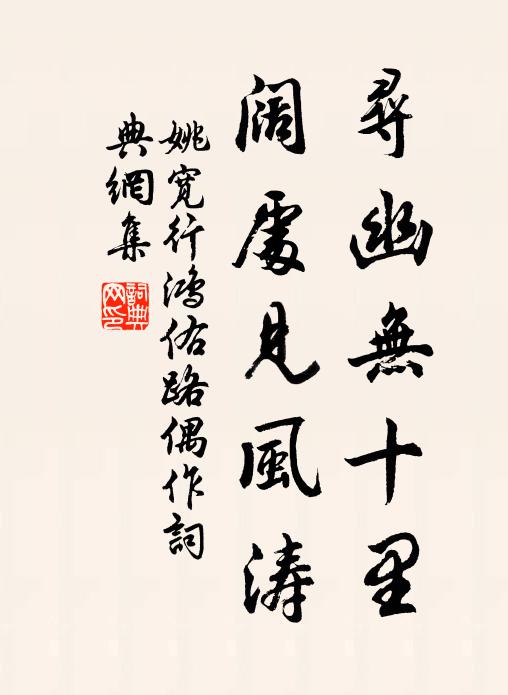 尋幽無十里
闊處見風濤
姚寬行鴻佑路偶作詞
典網集
詞典網印